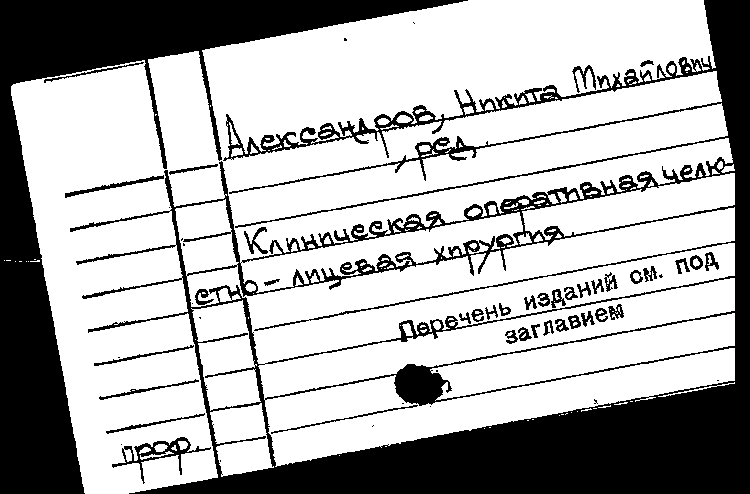 Александров, Никита Михайлович
, ред.
Клиническая оперативная челю-
стно-лицевая хирургия.
Перечень изданий см. под
заглавием
проф.